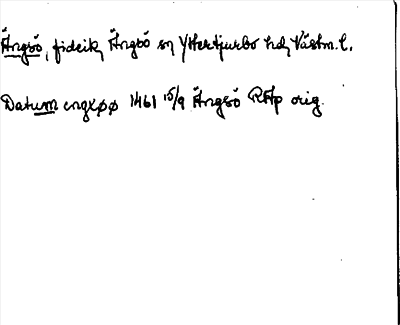 Ängsö, fideik, Ängsö sn Yttertjurbo hd, Västm. l.
Datum engxøø 1461 15/9 Ängsö RAp orig.